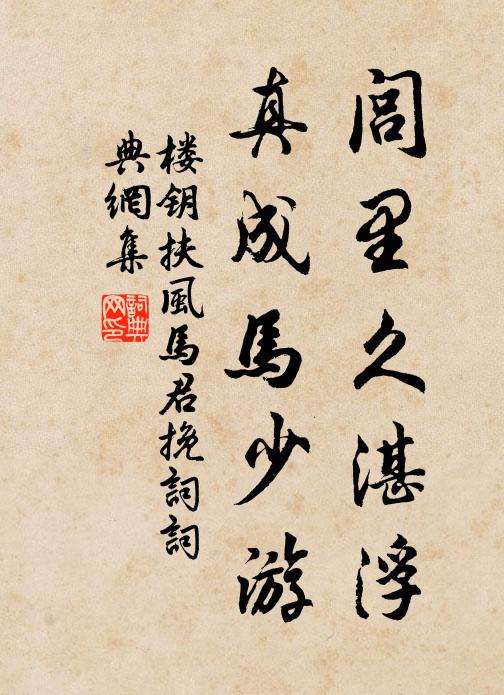 闾里久湛浮
真成馬少游
楼钥扶風馬君挽詞詞
典網集
詞典网印